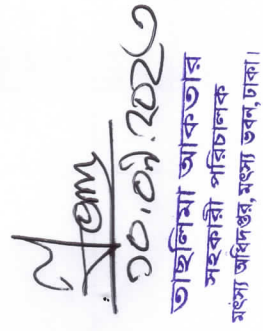 ১০.০৭.২০২৩
তাছলিমা আকতার
সহকারী পরিচালক
মৎস্য অধিদপ্তর, মৎস্য ভবন, ঢাকা।